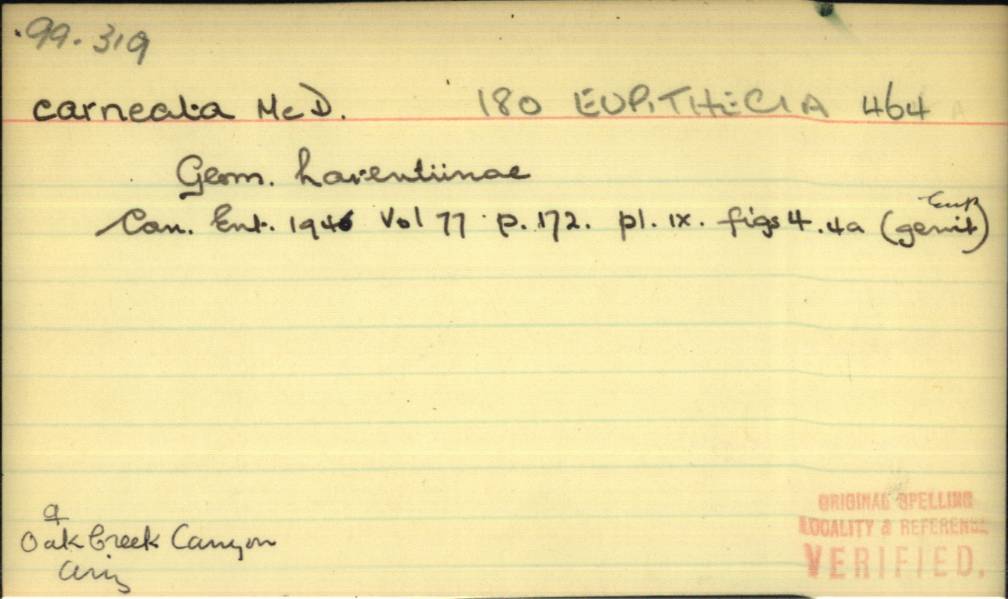 .99.319
carneata McD. 180 EUPITHECIA 464
Geom. Larentiinae
Eup
Can. Ent. 1946 Vol 77 p. 172. pl. IX. figs 4. 4a (genit)
Oak Creek Canyon
Ariz
ORIGINAL SPELLING
LOCALITY & REFERENCE
VERIFIED.